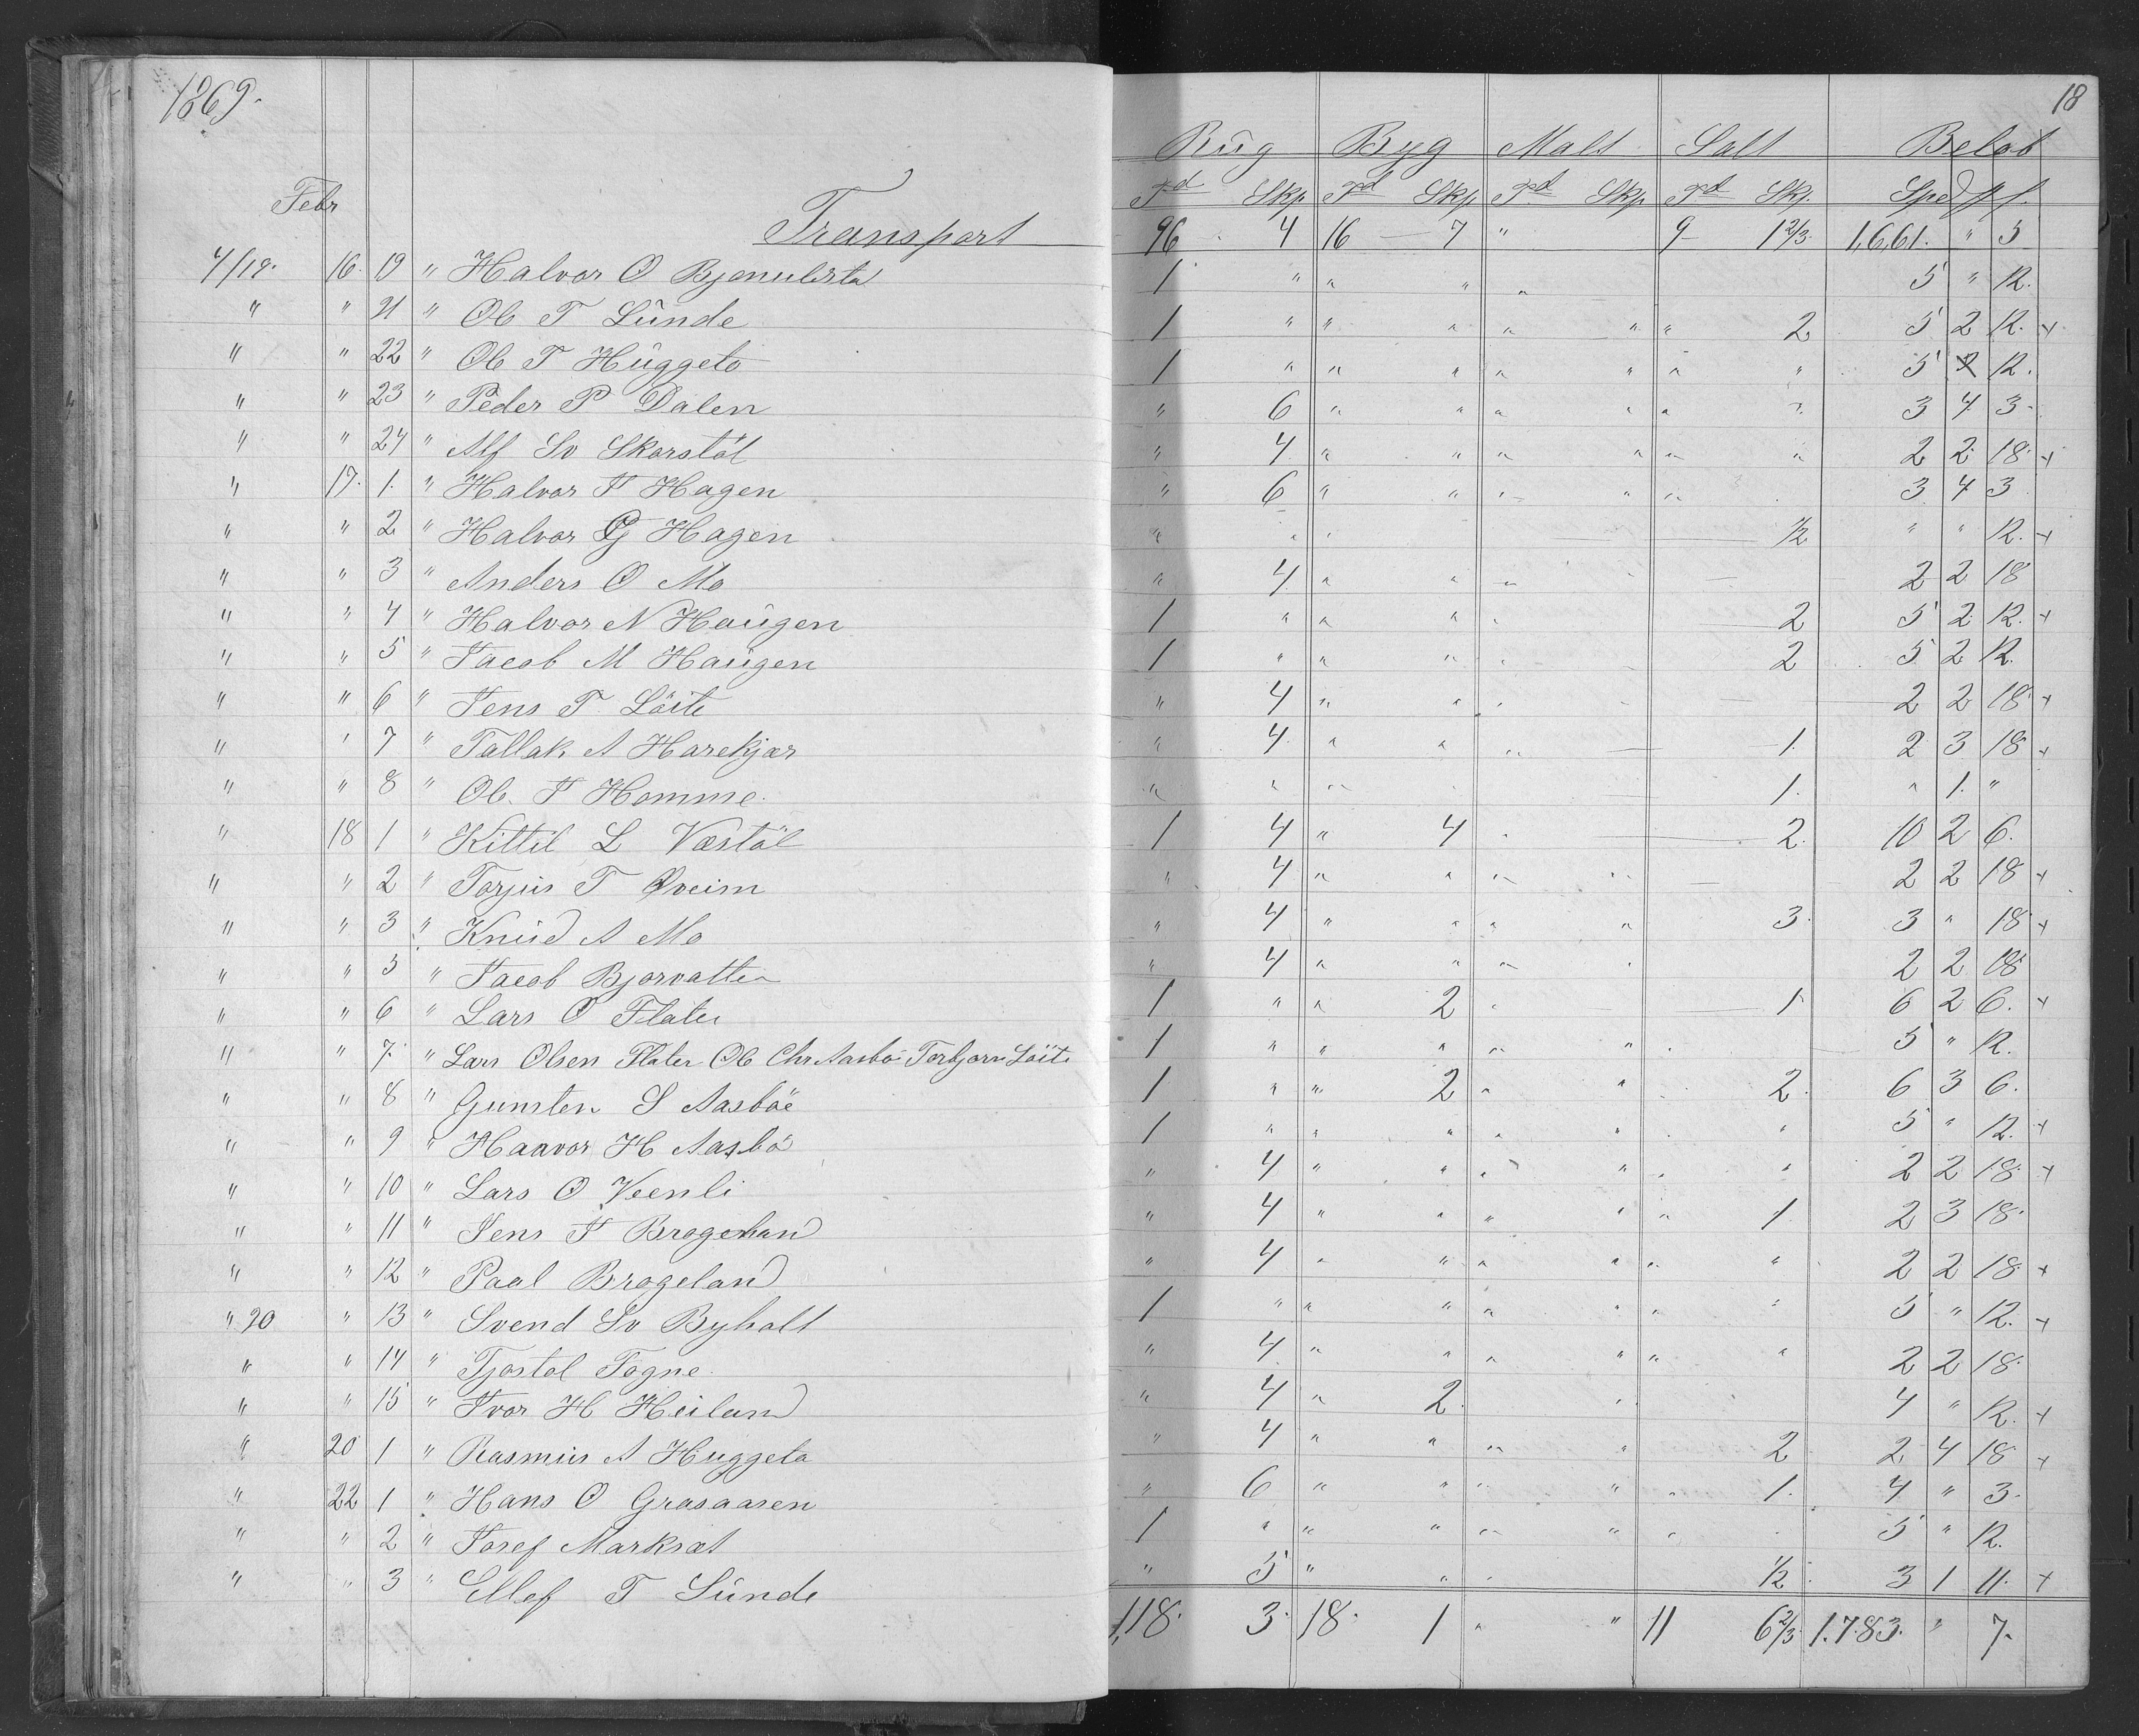 1869.
18
Rûg Byg Malt Salt Beløb
Febr Td Skp Td Skp Td Skp Td Skp. Spd
Transport 96 4 16 - 7 " 9 - 1 2/3 1,661. " 5
4/19. 16 19 " Halvor O 1 " " " " 5 " 12.
" " 21 " Ole T Sûnde 1 " " " " " " 2 5 2 12. +
" " 22 " Ole T Hûggeto 1 " " " " " " " 5 12.
" " 23 " Peder P Dalen " 6 " " " " " " 3 4 3
" " 24 " Alf Sv Skorstøl " 4 " " " " " " 2 2 18 +
" 17. 1. " Halvor J Hagen " 6 " " " " " 3 4 3
" " 2 " Halvor G Hagen " " " 1/2 " " 12. +
" " 3 " Anders O Mo " 4 " " " 2 2 18
" " 4 " Halvor N Haûgen 1 " " " " 2 5 2 12. +
" " 5 " Jacob M Haûgen 1 " " " " 2 5 2 12.
" " 6 " Jens T Löite " 4 " " " 2 2 18 +
" " 7 " Tallak A Harekjær " 4 " " " 1. 2 3 18 +
" " 8 " Ole J Homme. " " " 1. " 1. "
" 18 1 " Kittil L Væstøl 1 4 " 4 " 2. 10 2 6.
" " 2 " Torjus T Øveim " 4 " " " " 2 2 18 +
" " 3 " Knûd A Mo " 4 " " " " 3. 3 " 18 +
" " 5 " Jacob Bjorvatten " 4 " " " " 2 2 18
" " 6 " Lars O Flaten 1 " " 2 " 1 6 2 6. +
" " 7. " Lars Olsen Flaten Ole Chr Aasbö Torbjørn Löite 1 " " " " " 5 " 12.
" " 8 " Gunsten S Aasböe 1 " " 2 " " 2. 6 3 6.
" " 9 " Haavor H Aasbö 1 " " " " " " 5 " 12. +
" " 10 " Lars O Veenli " 4 " " " " " " 2 2 18 +
" " 11 " Jens J Brogeland " 4 " " " " " 1 2 3 18.
" " 12 " Paal Brogeland " 4 " " " " " " 2 2 18 +
" 20 " 13 " Svend Sv Byholt 1 " " " " " " " 5 " 12. +
" " 14 " Tjostol Togne. " 4 " " " " " " 2 2 18.
" " 15 " Ivor H Heiland " 4 " 2. " 4 " 12. +
" 20 1 " Rasmus A Huggeto " 4 " " " " 2 2 4 18 +
" 22 1 " Hans O Grasaasen " 6 " " " " " 1. 4 " 3.
" " 2 " Josef Marksæt 1 " " " " " " 5 " 12.
" " 3 " Ellef T Sûnde " 5 " " " 1/2 3 1 11. +
118. 3. 18. 1 " " 11 6 2/3 1.783. " 7.